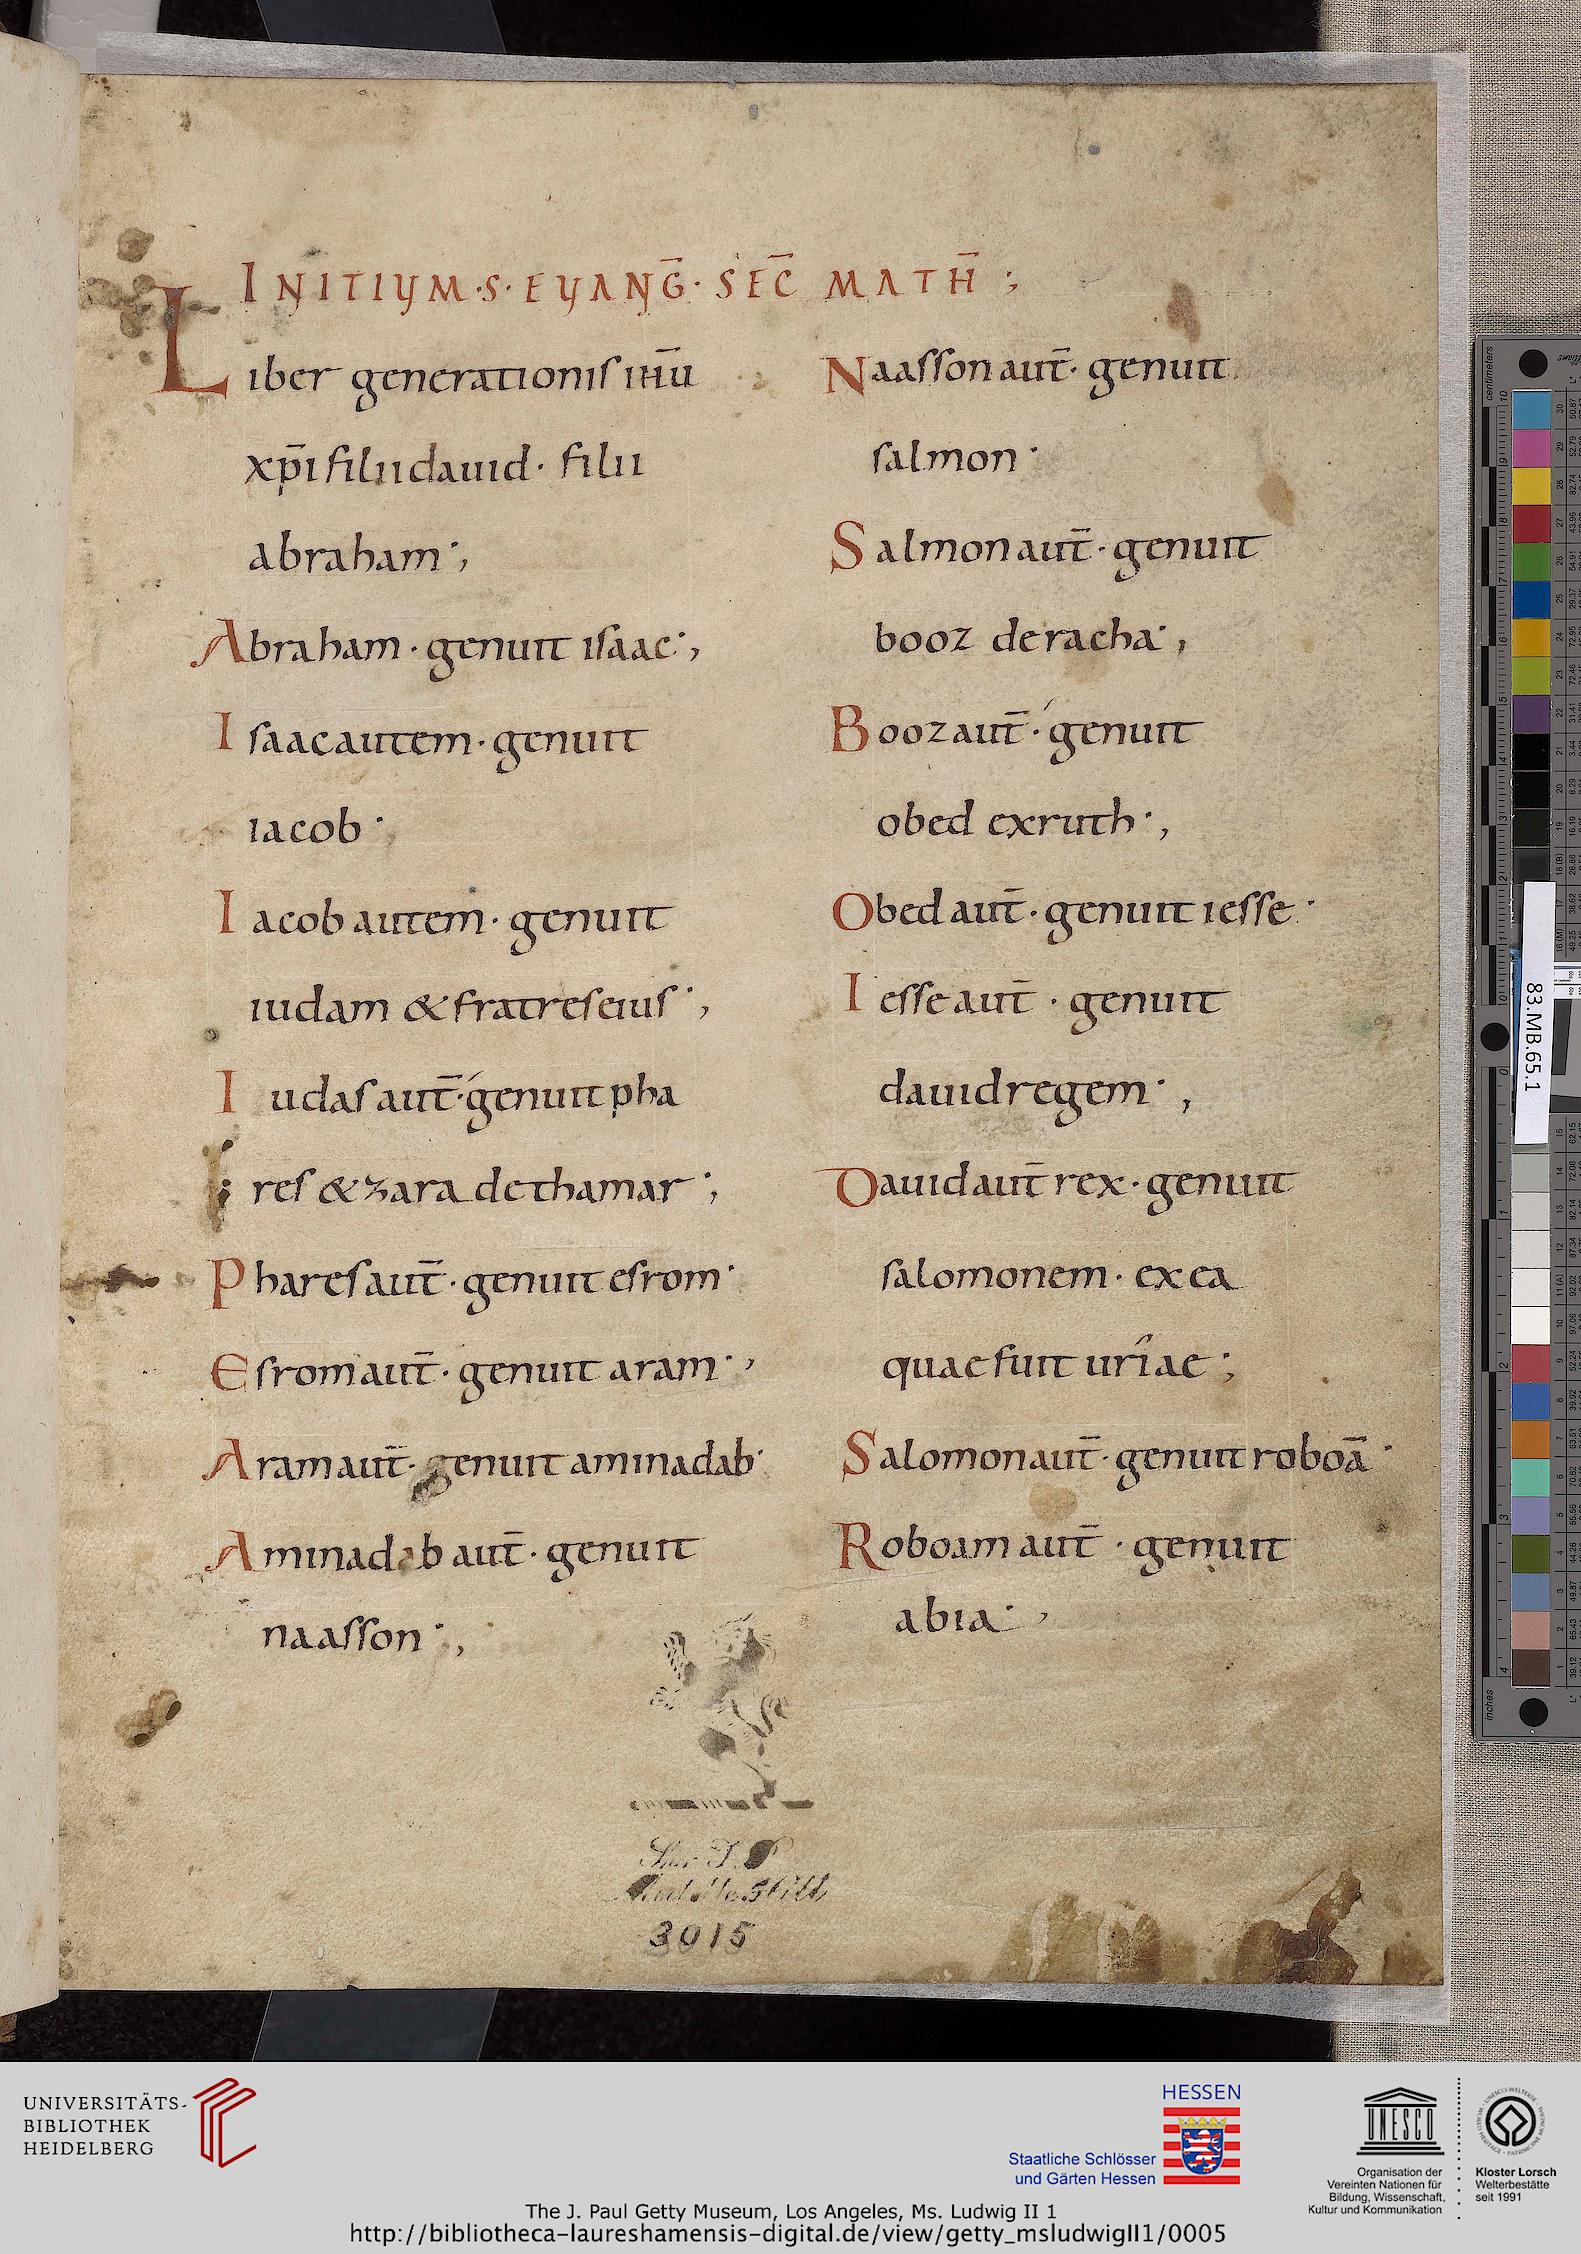 INITIUM·S·EUANG̅·SEC̅ MATH̅;
Liber generationis ih̅u
xp̅i filii dauid· filii
abraham·,
Abraham·genuit isaac·,
Isaac autem·genuit
iacob·
Iacob autem·genuit
iudam & fratres eius·,
Iudas aut̅·genuit pha
res & zara de thamar·,
Phares aut̅·genuit esrom·
Esrom aut̅·genuit aram·,
Aram aut̅·genuit aminadab·
Aminadab aut̅·genuit
naasson·,
Naasson aut̅·genuit
salmon·
Salmon aut̅·genuit
booz de racha·,
Booz aut̅·genuit
obed ex ruth·,
Obed aut̅·genuit iesse·
Iesse aut̅·genuit
dauid regem·,
Dauid aut̅ rex·genuit
salomonem·ex ea
quae fuit uriae;
Salomon aut̅·genuit roboa̅·
Roboam aut̅·genuit
abia·,
3015
centimeters
inches
83.MB.65.1
UNIVERSITÄTS-
BIBLIOTHEK
HEIDELBERG
HESSEN
Staatliche Schlösser
und Gärten Hessen
UNESCO
Organisation der
Vereinten Nationen für
Bildung, Wissenschaft,
Kultur und Kommunikation
Kloster Lorsch
Welterbestätte
seit 1991
The J. Paul Getty Museum, Los Angeles, Ms. Ludwig II 1
http://bibliotheca-laureshamensis-digital.de/view/getty_msludwigII1/0005